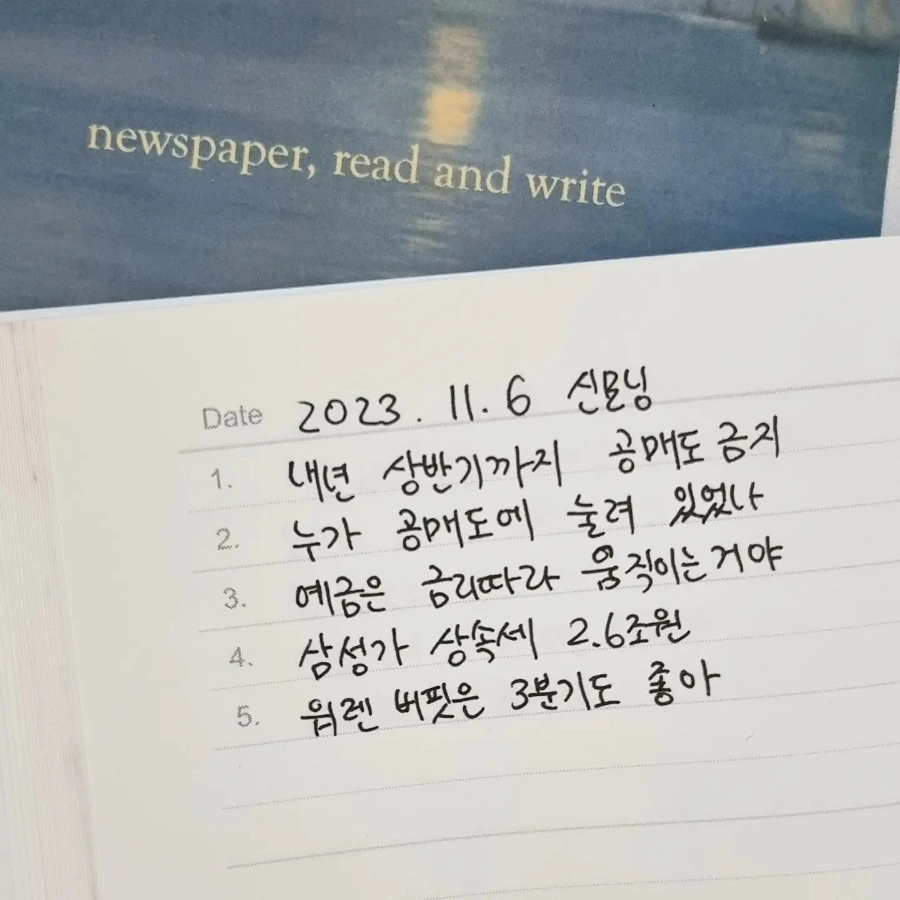 newspaper, read and write
Date 2023. 11. 6 신모닝
1. 내년 상반기까지 공매도 금지
2. 누가 공매도에 눌려 있었나
3. 예금은 금리따라 움직이는거야
4. 삼성가 상속세 2.6조원
5. 워렌 버핏은 3분기도 좋아